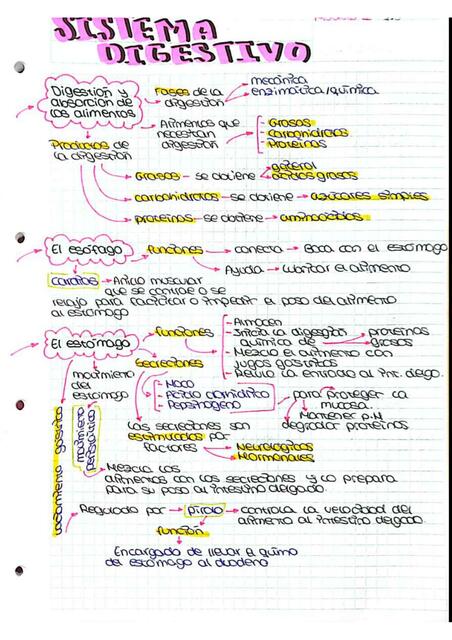 SISTEMA
DIGESTIVO
Digestión y
absorción de
los alimentos
Fases de la
digestión
mecánica
enzimática/química
Alimentos que
necesitan
digestión
- Grasas
- carbohidratos
- Proteínas
Productos de
la digestión
Grasas - se obtiene
glicerol
ácidos grasos
carbohidratos - se obtiene → azúcares simples
proteínas - se obtiene → aminoácidos
El esófago → funciones → conecta → Boca con el estómago
Ayuda → llevar el alimento
cardias → Anillo muscular
que se contrae o se
relaja para facilitar o impedir el paso del alimento
al estómago
El estómago
funciones
- Almacen
- Inicia la digestión
química de
proteínas
grasas
- Mezcla el alimento con
jugos gástricos
- Regula la entrada al int. delga.
secreciones
- Moco
- Ácido clorhídrico
- Pepsinógeno
para proteger la
mucosa.
Mantener p.H
degradar proteínas
movimiento
del
estómago
las secreciones son
estimuladas por
factores
Neurológicos
Hormonales
vaciamiento gástrico
movimiento
peristáltico
Mezcla los
alimentos con las secreciones y lo prepara
para su paso al intestino delgado.
Regulado por → píloro → controla la velocidad del
alimento al intestino delgado.
función
Encargado de llevar el quimo
del estómago al duodeno